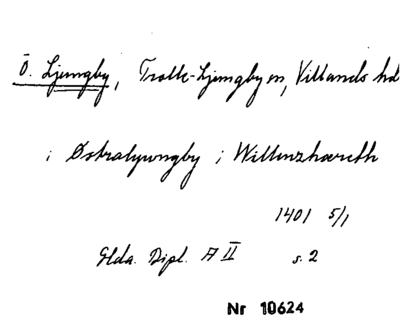 Ö. Ljungby, Trolle-Ljungby sn, Villands hd
i Østralyungby i Willenzhæreth
1401 5/1
Glda. Dipl. A II s. 2
Nr 10624